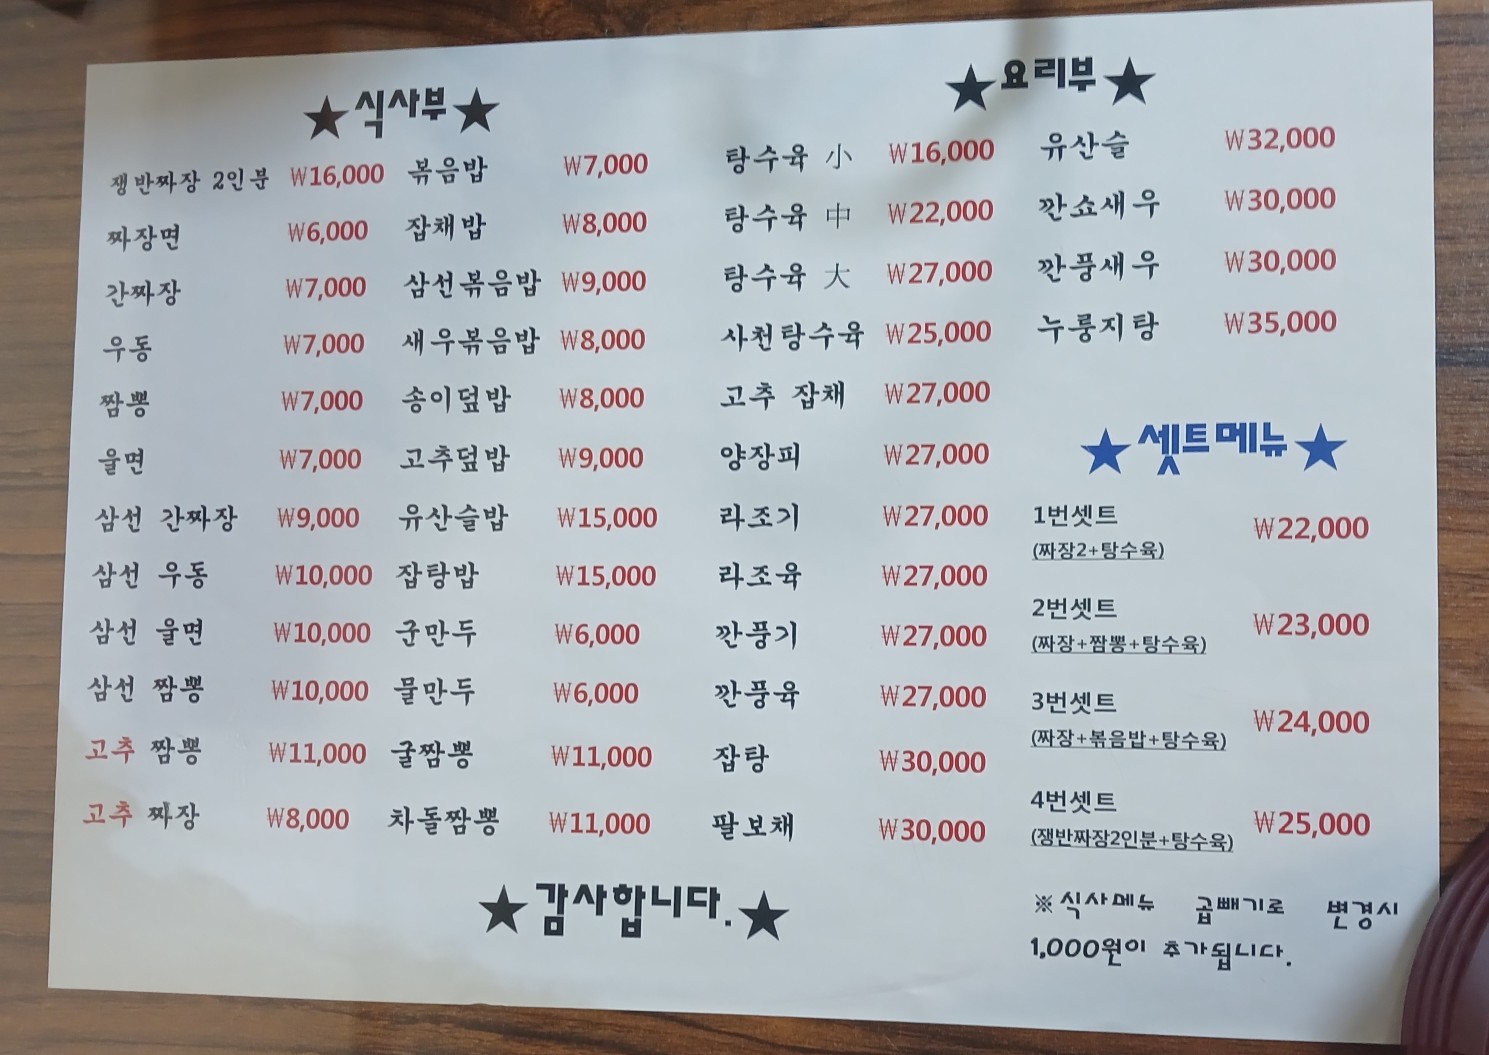 ★식사부★
쟁반짜장 2인분 ₩16,000
짜장면 ₩6,000
간짜장 ₩7,000
우동 ₩7,000
짬뽕 ₩7,000
울면 ₩7,000
삼선 간짜장 ₩9,000
삼선 우동 ₩10,000
삼선 울면 ₩10,000
삼선 짬뽕 ₩10,000
고추 짬뽕 ₩11,000
고추 짜장 ₩8,000
볶음밥 ₩7,000
잡채밥 ₩8,000
삼선볶음밥 ₩9,000
새우볶음밥 ₩8,000
송이덮밥 ₩8,000
고추덮밥 ₩9,000
유산슬밥 ₩15,000
잡탕밥 ₩15,000
군만두 ₩6,000
물만두 ₩6,000
굴짬뽕 ₩11,000
차돌짬뽕 ₩11,000
★요리부★
탕수육 小 ₩16,000
탕수육 中 ₩22,000
탕수육 大 ₩27,000
사천탕수육 ₩25,000
고추 잡채 ₩27,000
양장피 ₩27,000
라조기 ₩27,000
라조육 ₩27,000
깐풍기 ₩27,000
깐풍육 ₩27,000
잡탕 ₩30,000
팔보채 ₩30,000
유산슬 ₩32,000
깐쇼새우 ₩30,000
깐풍새우 ₩30,000
누룽지탕 ₩35,000
★셋트메뉴★
1번셋트 ₩22,000
(짜장2+탕수육)
2번셋트 ₩23,000
(짜장+짬뽕+탕수육)
3번셋트 ₩24,000
(짜장+볶음밥+탕수육)
4번셋트 ₩25,000
(쟁반짜장2인분+탕수육)
※식사메뉴 곱빼기로 변경시
1,000원이 추가됩니다.
★감사합니다.★